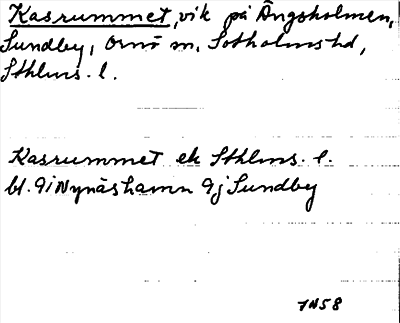 Kasrummet, vik på Ängsholmen,
Sundby, Ornö sn, Sotholms hd,
Sthlms. l.
Kasrummet ek Sthlms. l.
bl. 9i Nynäshamn 9j Sundby
JN58